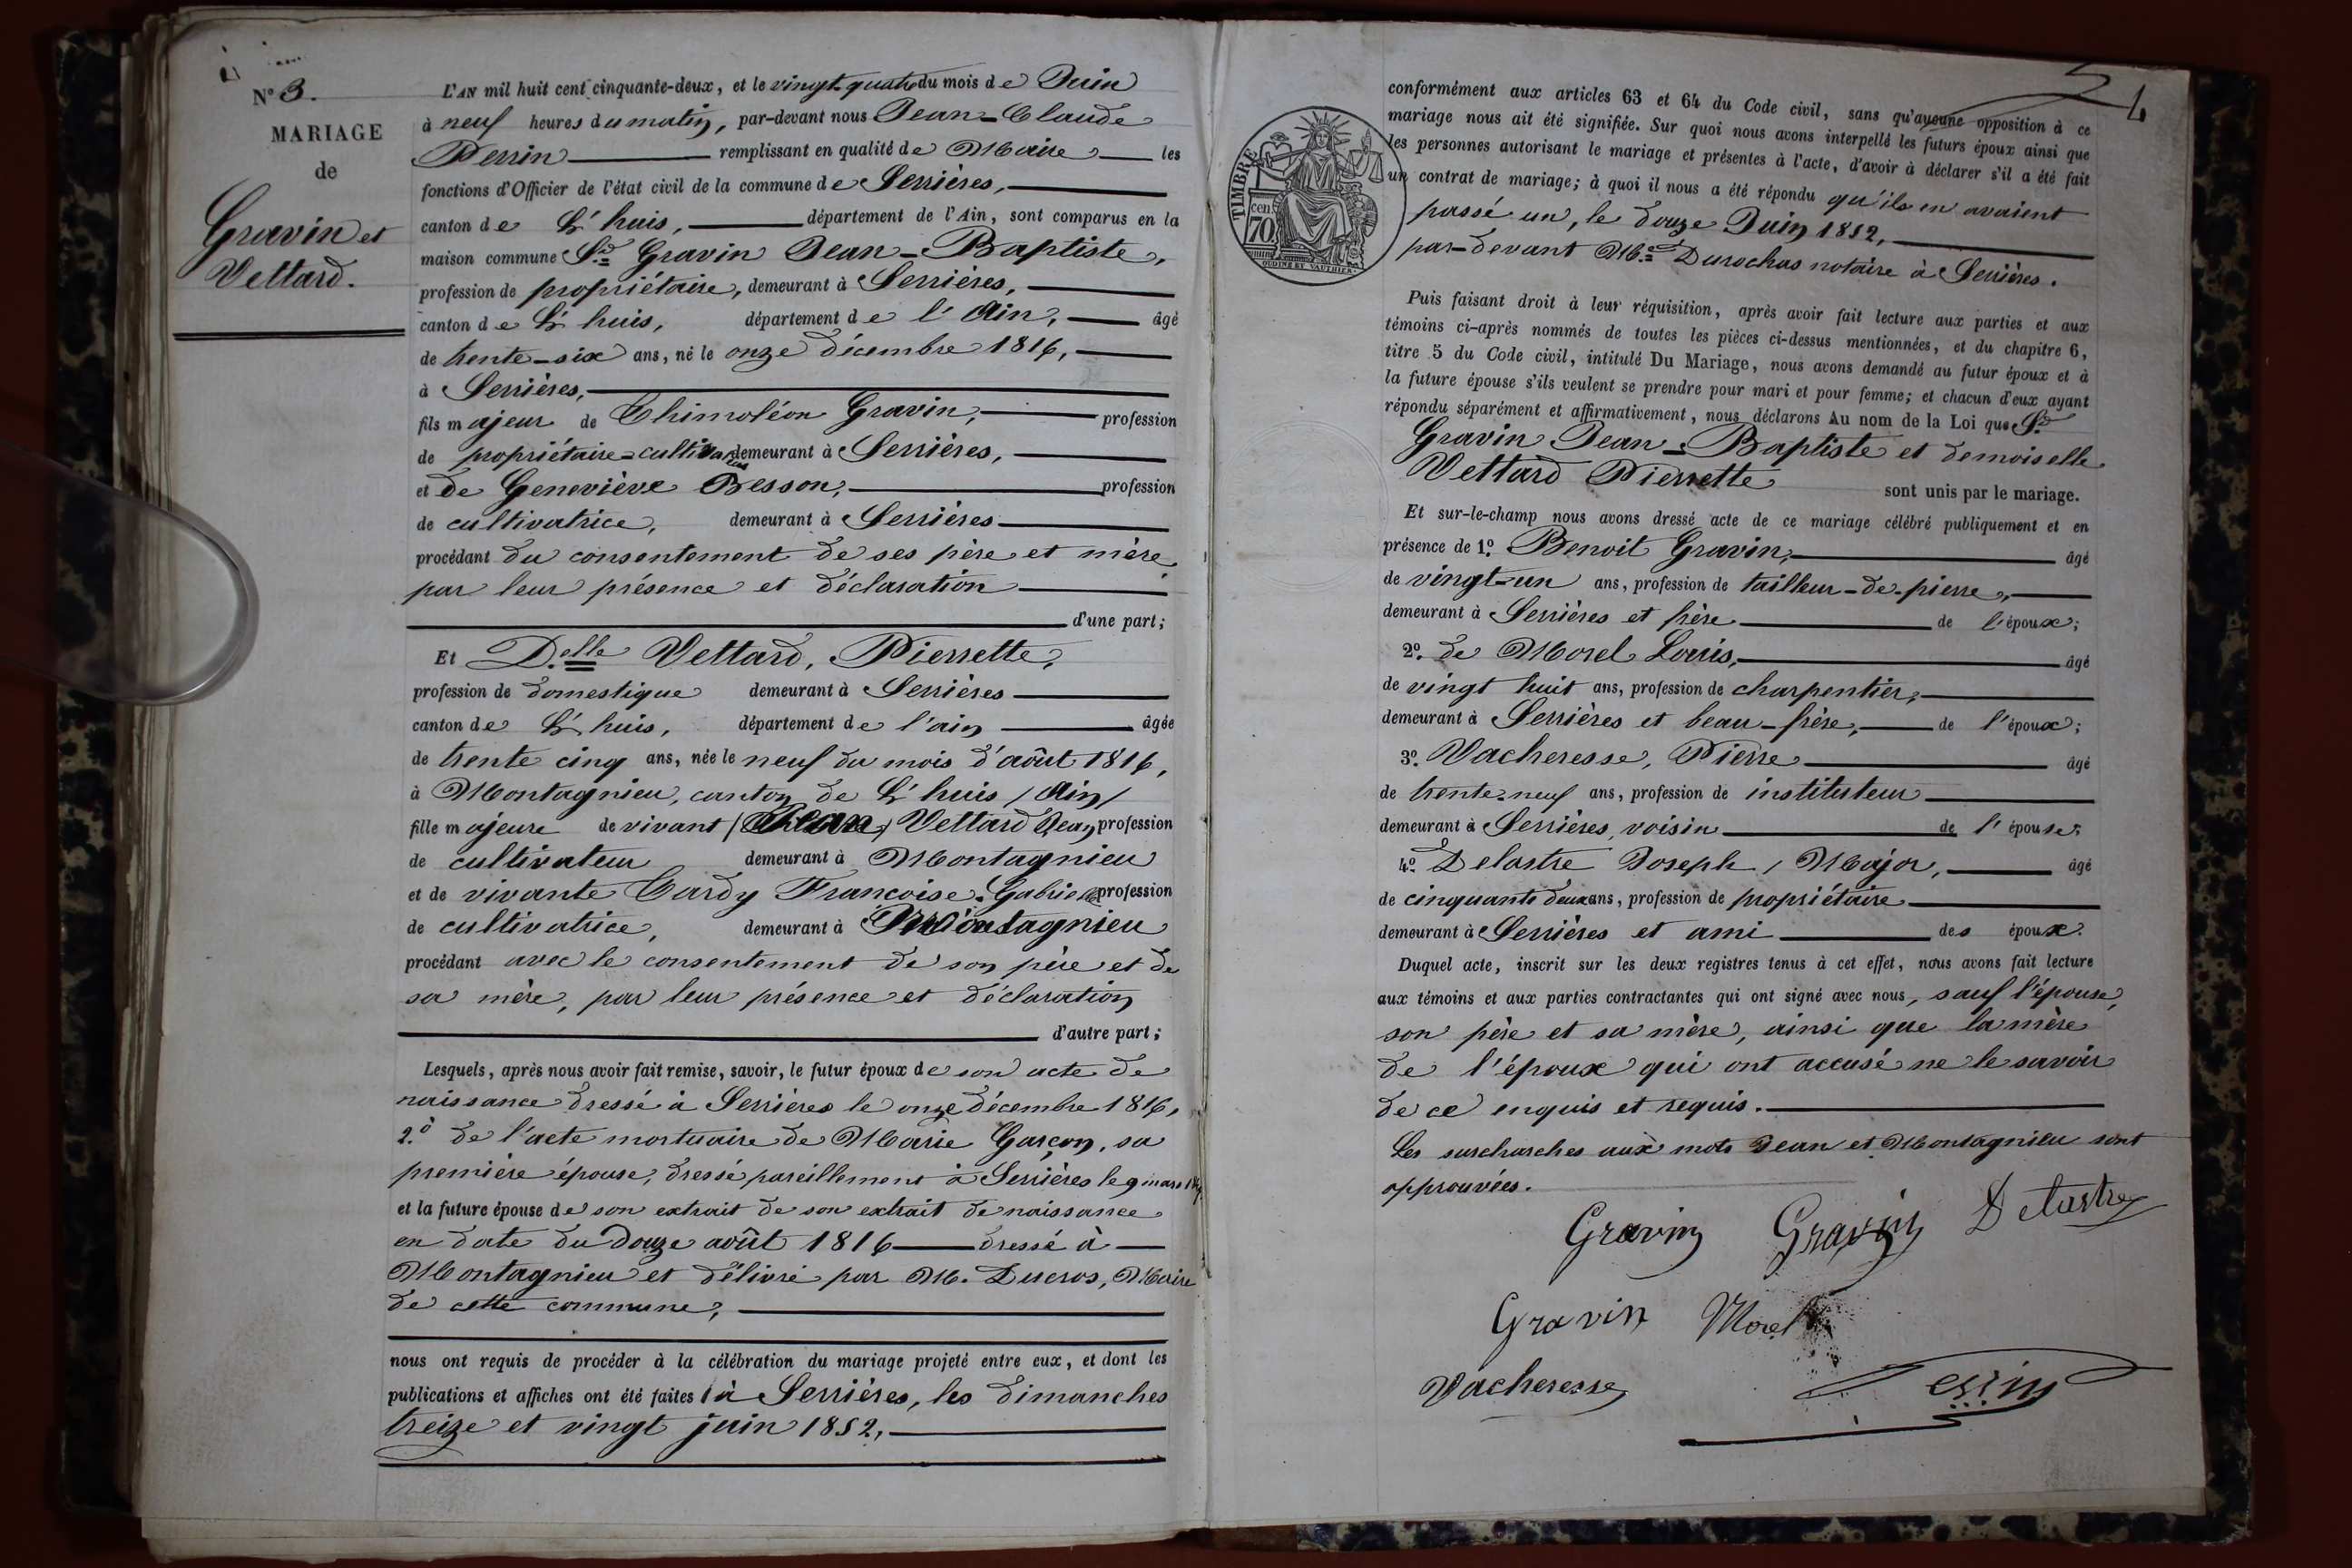 N° 3.
MARIAGE
de
Gravin et
Vettard.
L'AN mil huit cent cinquante-deux, et le vingt-quatre du mois de Juin
à neuf heures du matin, par-devant nous Jean-Claude
Perrin remplissant en qualité de Maire les
fonctions d'Officier de l'état civil de la commune de Serrières,
canton de L'huis, département de l'Ain, sont comparus en la
maison commune Sr. Gravin Jean-Baptiste,
profession de propriétaire, demeurant à Serrières,
canton de L'huis, département de l'Ain, âgé
de trente-six ans, né le onze décembre 1816,
à Serrières,
fils majeur de Thimoléon Gravin, profession
de propriétaire-cultivateur demeurant à Serrières,
et de Geneviève Besson, profession
de cultivatrice, demeurant à Serrières
procédant du consentement de ses père et mère,
par leur présence et déclaration
d'une part;
Et D.elle Vettard, Pierrette,
profession de domestique demeurant à Serrières
canton de L'huis, département de l'ain âgée
de trente cinq ans, née le neuf du mois d'août 1816,
à Montagnieu, canton de L'huis / Ain /
fille majeure de vivant / Jean / Vettard Jean profession
de cultivateur demeurant à Montagnieu
et de vivante Cardy Françoise-Gabrielle profession
de cultivatrice, demeurant à Montagnieu
procédant avec le consentement de son père et de
sa mère, par leur présence et déclaration
d'autre part;
Lesquels, après nous avoir fait remise, savoir, le futur époux de son acte de
naissance dressé à Serrières le onze décembre 1816,
2.° de l'acte mortuaire de Marie Garçon, sa
première épouse, dressé pareillement à Serrières le 9 mars
et la future épouse de son extrait de son extrait de naissance
en date du douze août 1816 dressé à
Montagnieu et délivré par M. Ducros, Maire
de cette commune,
nous ont requis de procéder à la célébration du mariage projeté entre eux, et dont les
publications et affiches ont été faites à Serrières, les dimanches
treize et vingt juin 1852,
4
TIMBRE
cen.
70
OUDINÉ ET VAUTHIER
conformément aux articles 63 et 64 du Code civil, sans qu'aucune opposition à ce
mariage nous ait été signifiée. Sur quoi nous avons interpellé les futurs époux ainsi que
les personnes autorisant le mariage et présentes à l'acte, d'avoir à déclarer s'il a été fait
un contrat de mariage; à quoi il nous a été répondu qu'ils en avaient
passé un, le douze Juin 1852,
par-devant M.e Durochas notaire à Serrières.
Puis faisant droit à leur réquisition, après avoir fait lecture aux parties et aux
témoins ci-après nommés de toutes les pièces ci-dessus mentionnées, et du chapitre 6,
titre 5 du Code civil, intitulé Du Mariage, nous avons demandé au futur époux et à
la future épouse s'ils veulent se prendre pour mari et pour femme; et chacun d'eux ayant
répondu séparément et affirmativement, nous déclarons Au nom de la Loi que Sr.
Gravin Jean-Baptiste et demoiselle
Vettard Pierrette sont unis par le mariage.
Et sur-le-champ nous avons dressé acte de ce mariage célébré publiquement et en
présence de 1°. Benoit Gravin, âgé
de vingt-un ans, profession de tailleur-de-pierre,
demeurant à Serrières et frère de l'époux;
2°. de Morel Louis, âgé
de vingt huit ans, profession de charpentier,
demeurant à Serrières et beau-frère, de l'époux;
3°. Vacheresse, Pierre âgé
de trente-neuf ans, profession de instituteur
demeurant à Serrières, voisin de l'épouse;
4°. Delastre Joseph / Major, âgé
de cinquante deux ans, profession de propriétaire
demeurant à Serrières et ami des époux.
Duquel acte, inscrit sur les deux registres tenus à cet effet, nous avons fait lecture
aux témoins et aux parties contractantes qui ont signé avec nous, sauf l'épouse,
son père et sa mère, ainsi que la mère
de l'époux qui ont accusé ne le savoir
de ce enquis et requis.
Les surcharches aux mots Jean et Montagnieu sont
approuvées.
Gravin Gravin Delastre
Gravin Morel
Vacheresse Perrin